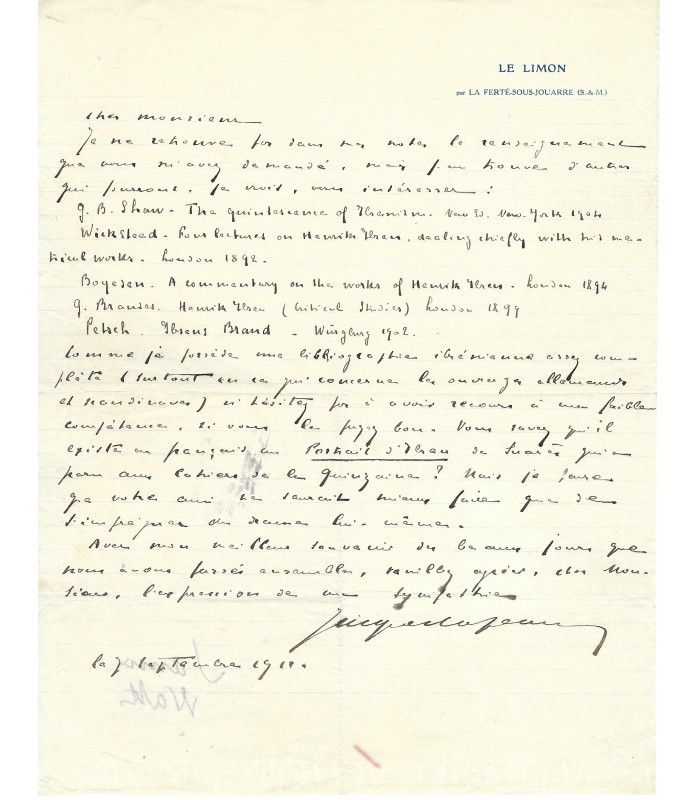 LE LIMON
par LA FERTÉ-SOUS-JOUARRE (S.-&-M.)
Cher Monsieur
Je ne retrouve pas dans mes notes le renseignement
que vous m'avez demandé, mais j'en trouve d'autres
qui pourront, je crois, vous intéresser :
G. B. Shaw - The quintessence of Ibsenism. New Ed. New-York 1904
Wicksteed - Four lectures on Henrik Ibsen, dealing chiefly with his me-
trical works - London 1892.
Boyesen. A commentary on the works of Henrik Ibsen - London 1894
G. Brandes. Henrik Ibsen (Critical Studies) London 1899
Petsch. Ibsens Brand - Würzburg 1902.
Comme je possède une bibliographie ibsénienne assez com-
plète (surtout en ce qui concerne les ouvrages allemands
et scandinaves) n'hésitez pas à avoir recours à ma faible
compétence, si vous le jugez bon. Vous savez qu'il
existe en français un Portrait d'Ibsen de Suarès qui a
paru aux Cahiers de la Quinzaine ? Mais je pense
que votre ami ne saurait mieux faire que de
s'imprégner des drames lui-même.
Avec mon meilleur souvenir des beaux jours que
nous avons passés ensemble, veuillez agréer, cher Mon-
sieur, l'expression de ma sympathie
le 7 septembre 1911.